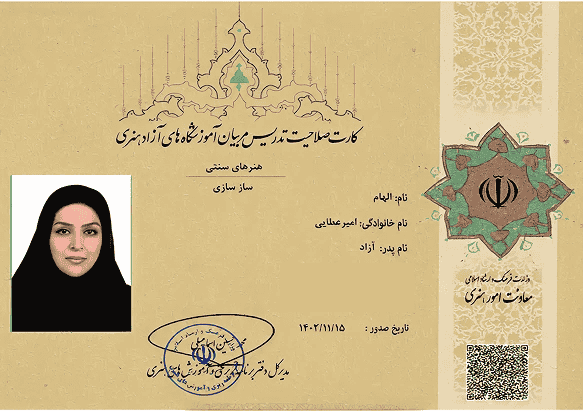 کارت صلاحیت تدریس مربیان آموزشگاه های آزاد هنری
هنرهای سنتی
ساز سازی
نام: الهام
نام خانوادگی: امیرعطایی
نام پدر: آزاد
وزارت فرهنگ و ارشاد اسلامی
معاونت امور هنری
تاریخ صدور : ۱۴۰۲/۱۱/۱۵
اسماعیلی
مدیرکل دفتر برنامه ریزی و آموزش های هنری